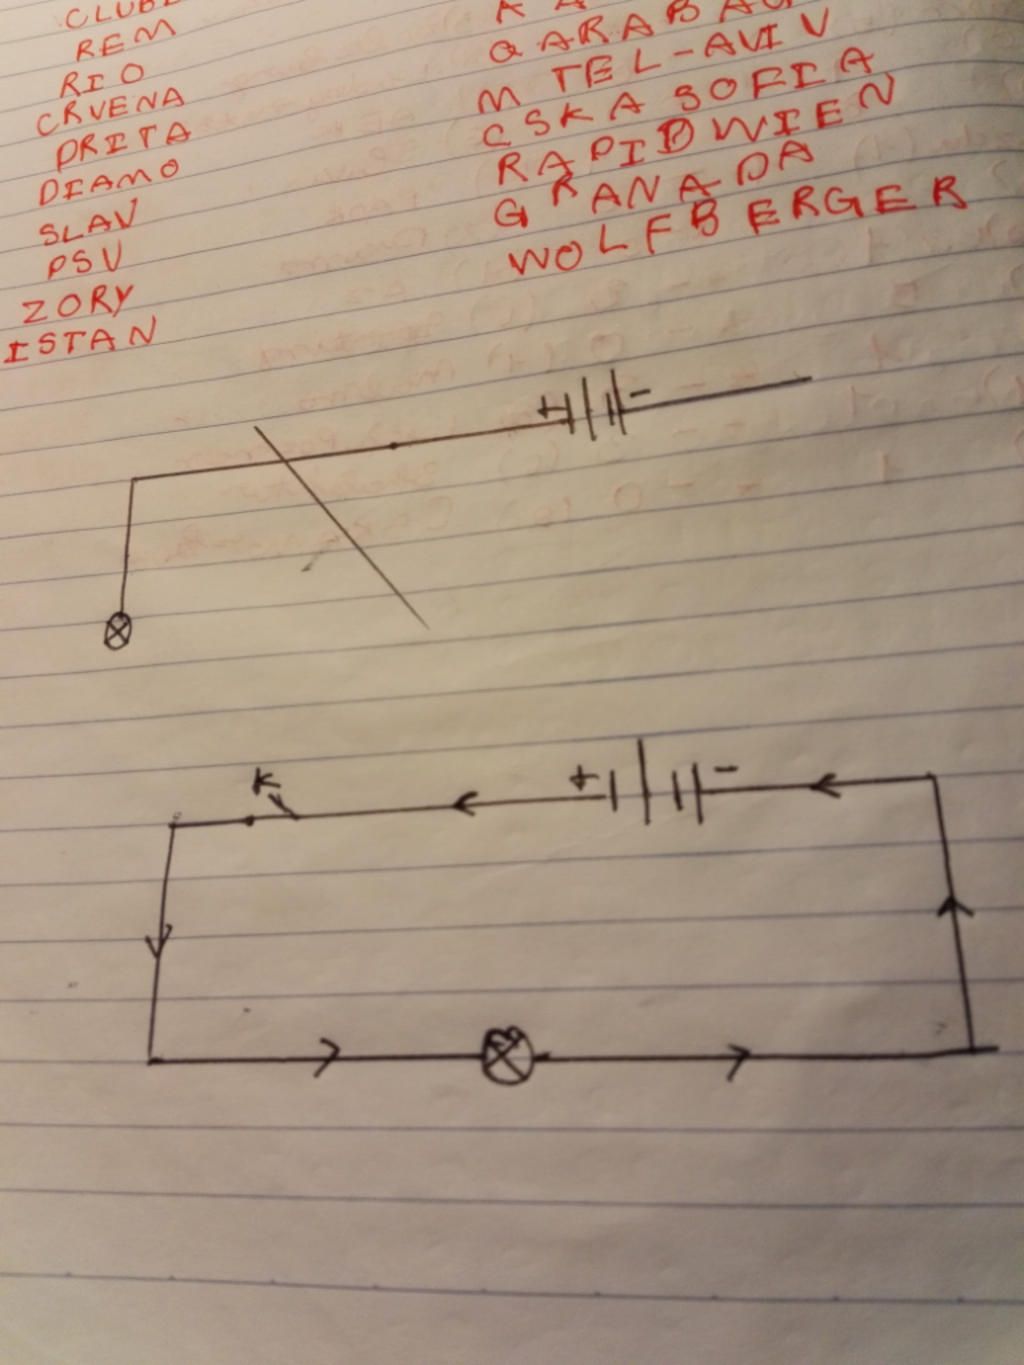 REM
RIO
CRVENA
DRITA
DIAMO
SLAV
PSV
ZORY
ISTAN
QARABAG
M TEL-AVIV
CSKA SOFIA
RAPID WIEN
GRANADA
WOLFBERGER
+ -
K + -